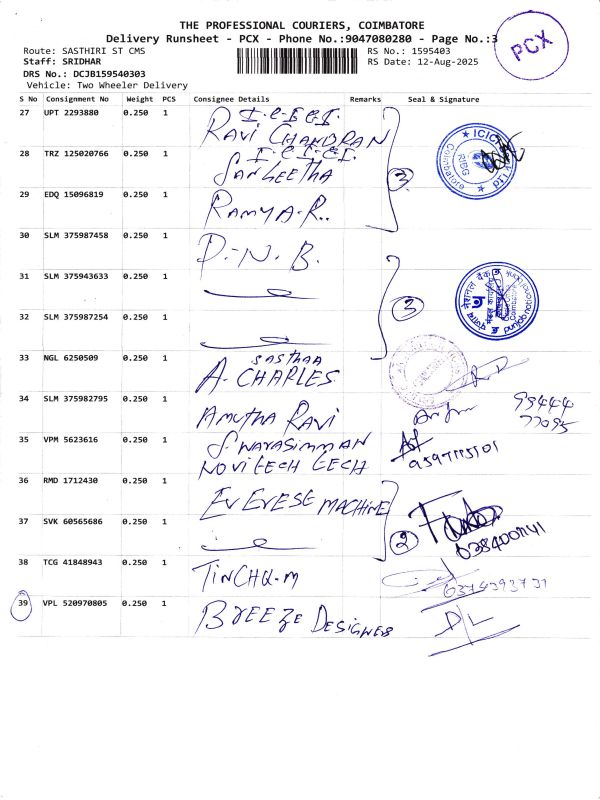 THE PROFESSIONAL COURIERS, COIMBATORE
Delivery Runsheet - PCX - Phone No.:9047080280 - Page No.:3
PCX
Route: SASTHIRI ST CMS
RS No.: 1595403
Staff: SRIDHAR
RS Date: 12-Aug-2025
DRS No.: DCJB159540303
Vehicle: Two Wheeler Delivery
S No Consignment No Weight PCS Consignee Details Remarks Seal & Signature
27 UPT 2293880 0.250 1 I.C.I.C.I.
RAVI CHANDRAN
28 TRZ 125020766 0.250 1 I.C.I.C.I.
SANGEETHA
3
ICICI
Coimbatore
RIBG
29 EDQ 15096819 0.250 1 RAMYA.R..
30 SLM 375987458 0.250 1 P.N.B.
31 SLM 375943633 0.250 1
3
punjab national
32 SLM 375987254 0.250 1
33 NGL 6250509 0.250 1 SASTHAA
A. CHARLES
34 SLM 375982795 0.250 1 AMUTHA RAVI
99444
77095
35 VPM 5623616 0.250 1 SWAYASIMMAN
NOVITECH TECH
36 RMD 1712430 0.250 1 EVEREST MACHINE
37 SVK 60565686 0.250 1
2
38 TCG 41848943 0.250 1 TINCHU-M
39 VPL 520970805 0.250 1 BREEZE DESIGNER